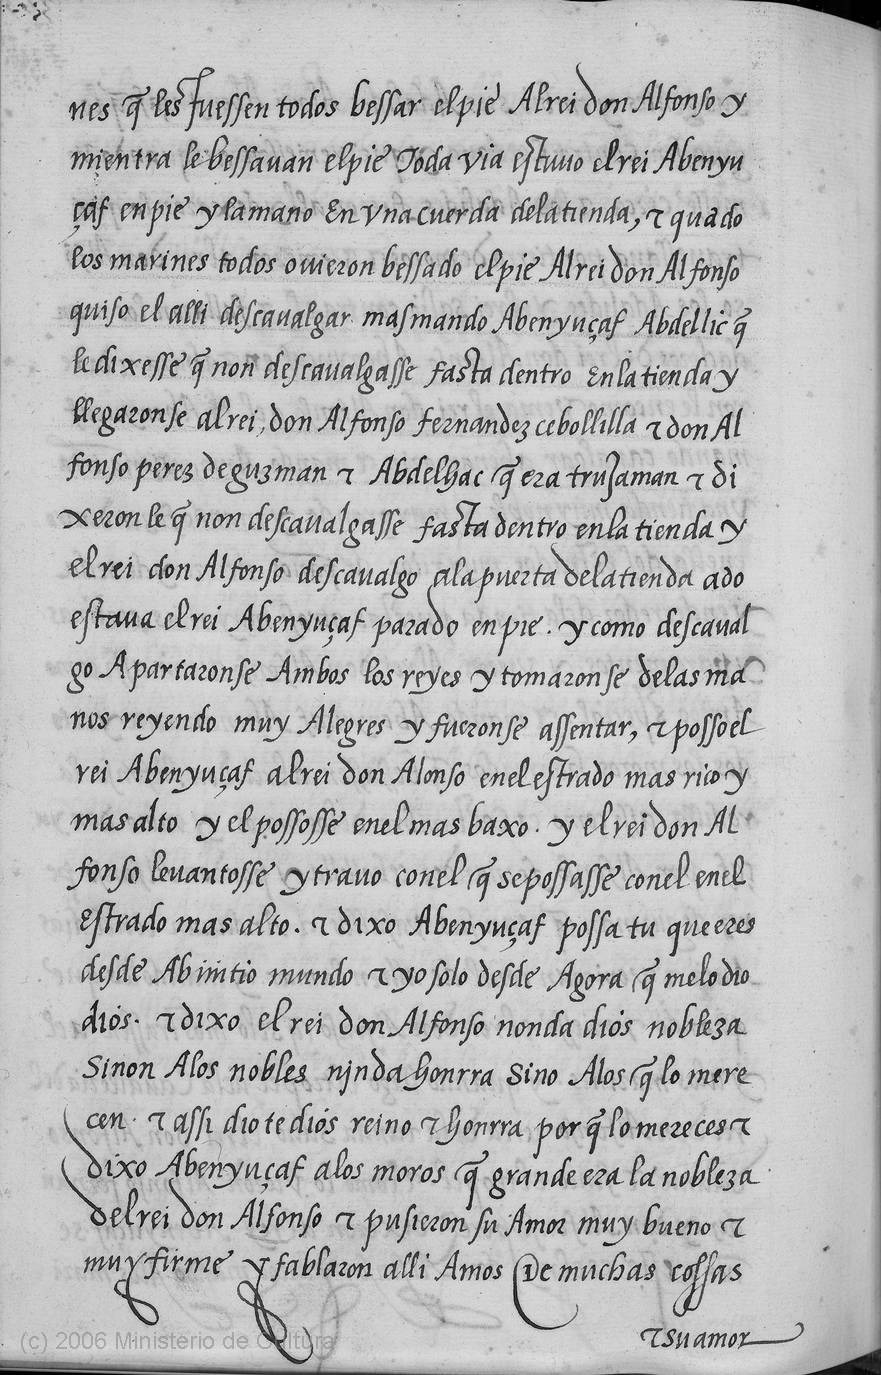 nes q̃ les fuessen todos bessar el pie Al rei don Alfonso y
mientra le bessauan el pie Toda via estuuo el rei Abenyu
çaf en pie y la mano En vna cuerda de la tienda, ⁊ quãdo
los marines todos ovieron bessado el pie Al rei don Alfonso
quiso el alli descaualgar mas mando Abenyuçaf Abdellic q̃
le dixesse q̃ non descaualgasse fasta dentro En la tienda y
llegaronse al rei, don Alfonso fernandez cebollilla ⁊ don Al
fonso perez de guzman ⁊ Abdelhac q̃ era trujaman ⁊ di
xeron le q̃ non descaualgasse fasta dentro en la tienda y
el rei don Alfonso descaualgo a la puerta de la tienda ado
estaua el rei Abenyuçaf parado en pie. y como descaual
go Apartaronse Ambos los reyes y tomaronse de las ma
nos reyendo muy Alegres y fueronse assentar, ⁊ posso el
rei Abenyuçaf al rei don Alonso en el estrado mas rico y
mas alto y el possosse en el mas baxo. y el rei don Al
fonso leuantosse y trauo con el q̃ se possasse con el en el
Estrado mas alto. ⁊ dixo Abenyuçaf possa tu que eres
desde Ab initio mundo ⁊ yo solo desde Agora q̃ me lo dio
dios. ⁊ dixo el rei don Alfonso non da dios nobleza
Sinon Alos nobles nin da honrra Sino Alos q̃ lo mere
cen. ⁊ assi dio te dios reino ⁊ honrra por q̃ lo mereces ⁊
dixo Abenyuçaf a los moros q̃ grande era la nobleza
del rei don Alfonso ⁊ pusieron su Amor muy bueno ⁊
muy firme y fablaron alli Amos De muchas cossas
⁊ su amor
(c) 2006 Ministerio de Cultura